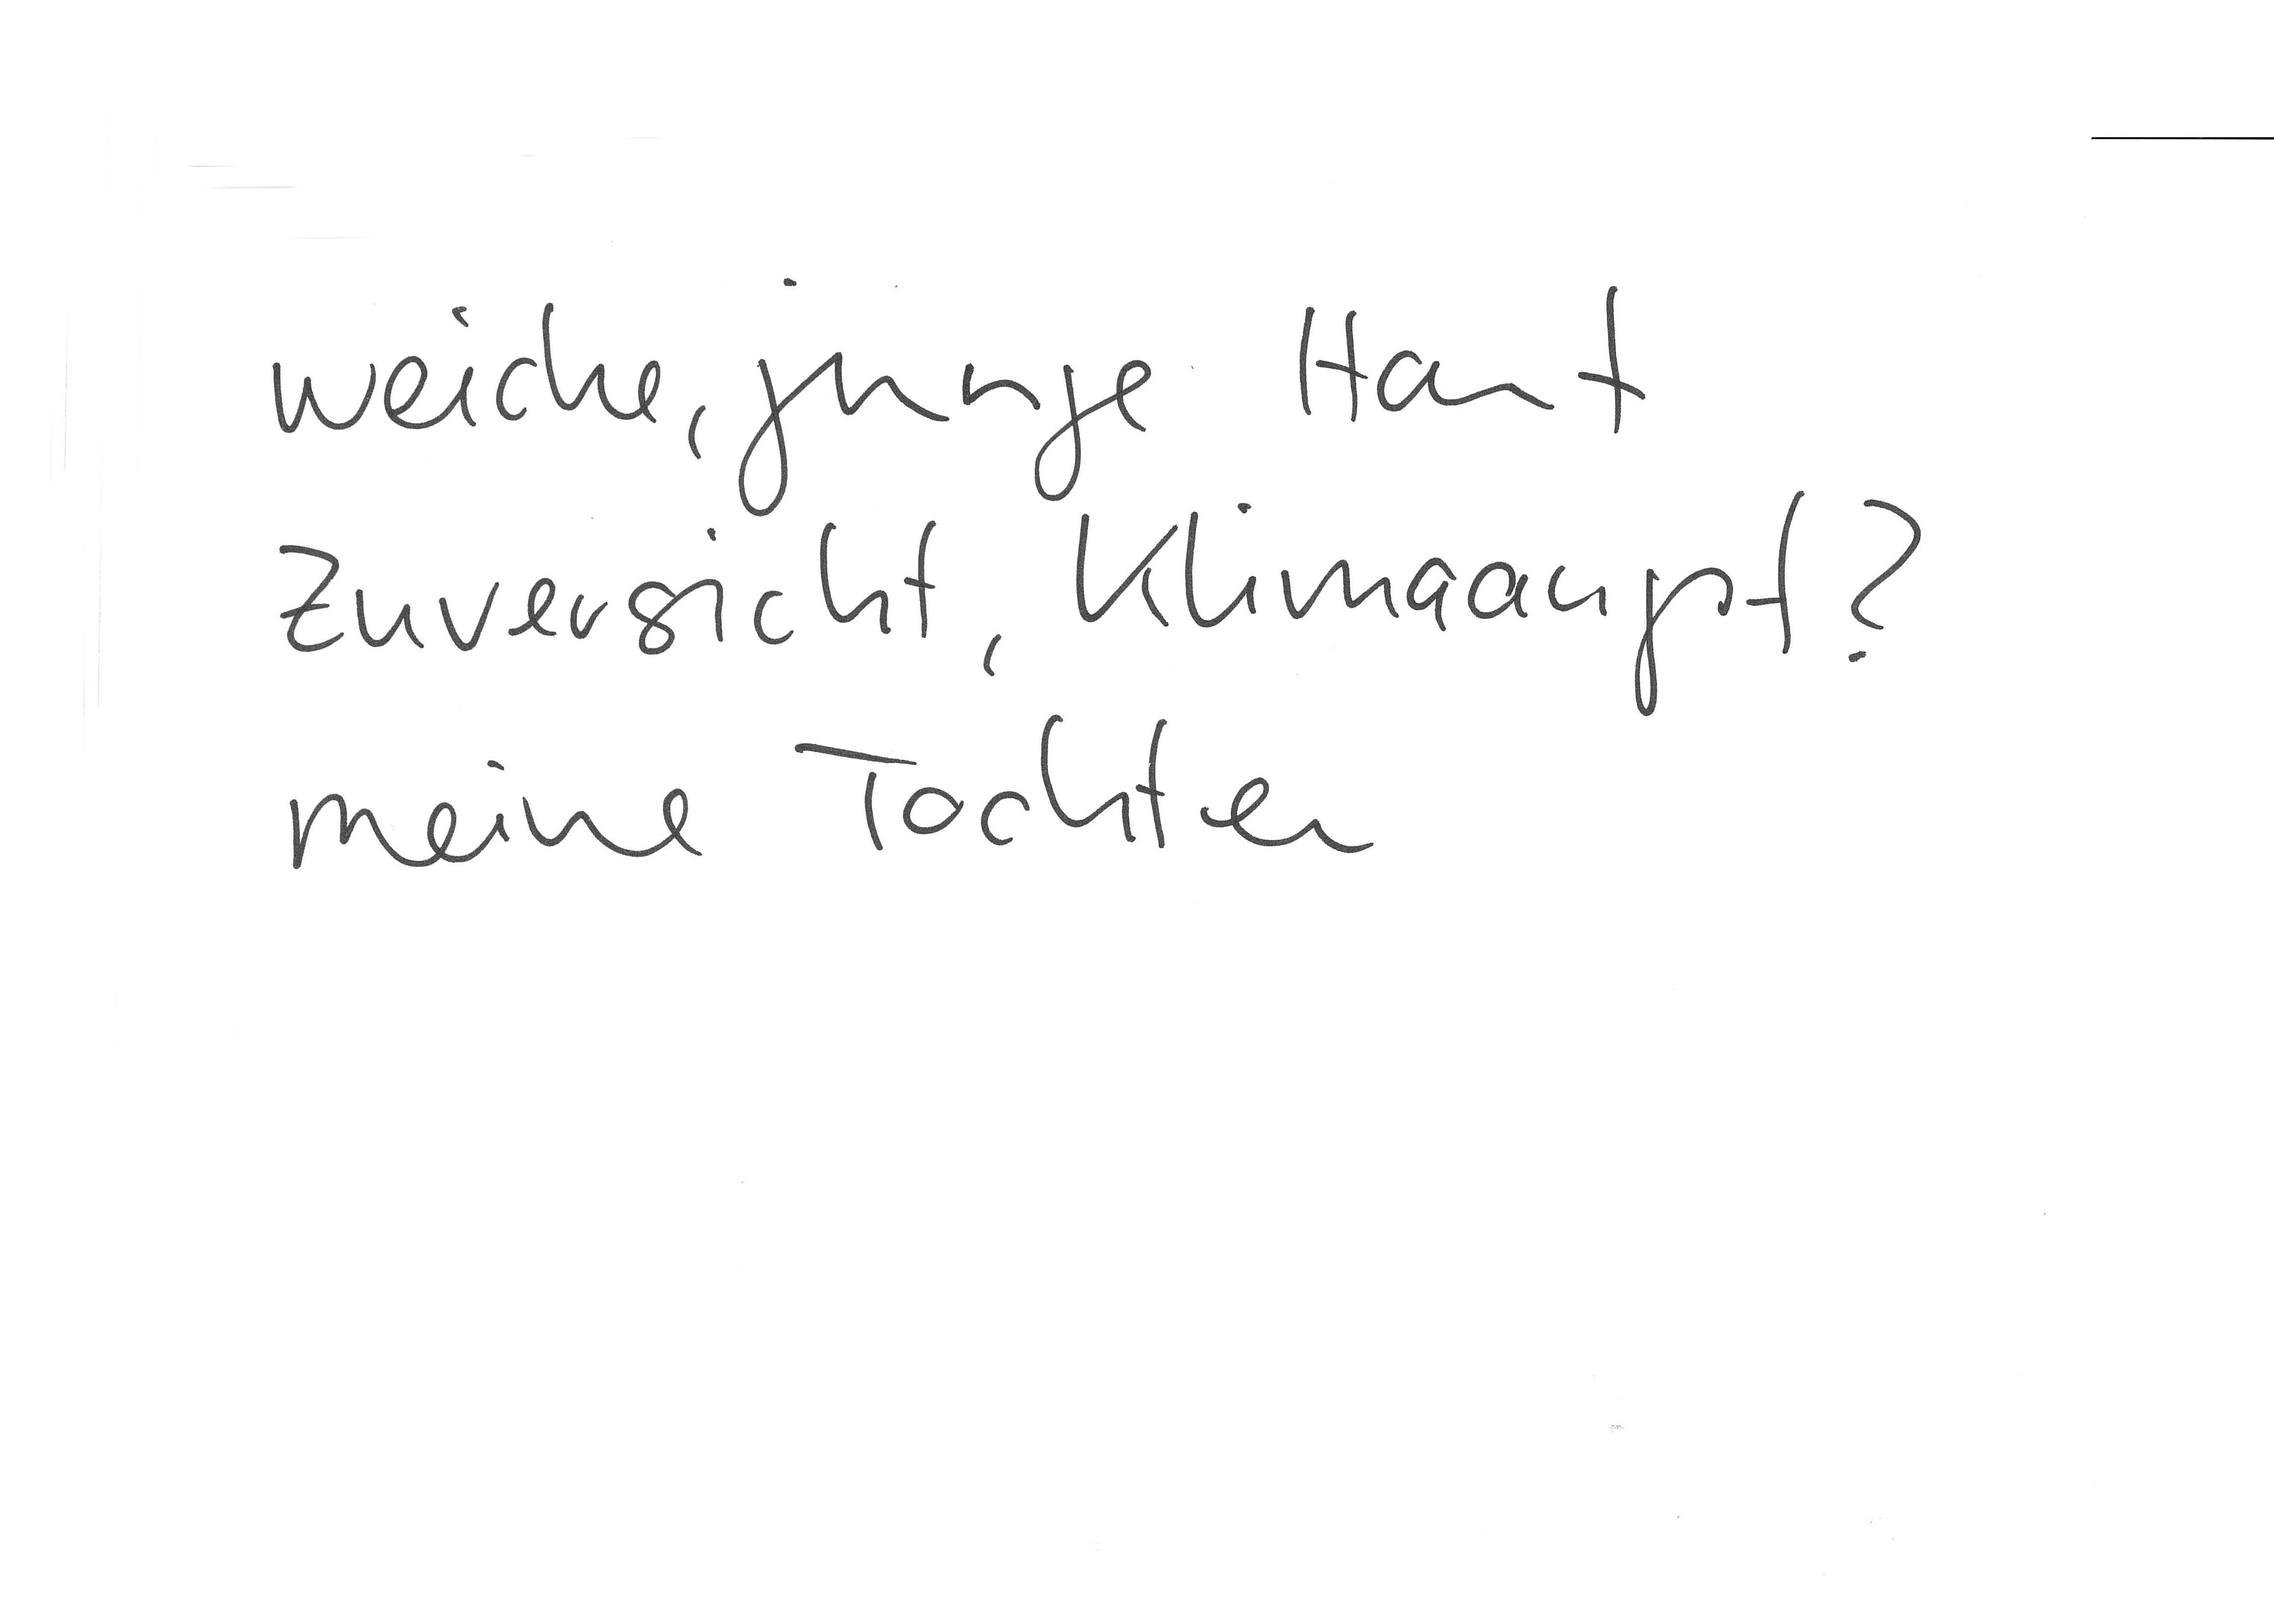 weiche, junge Haut
Zuversicht, Klimaangst?
meine Tochter